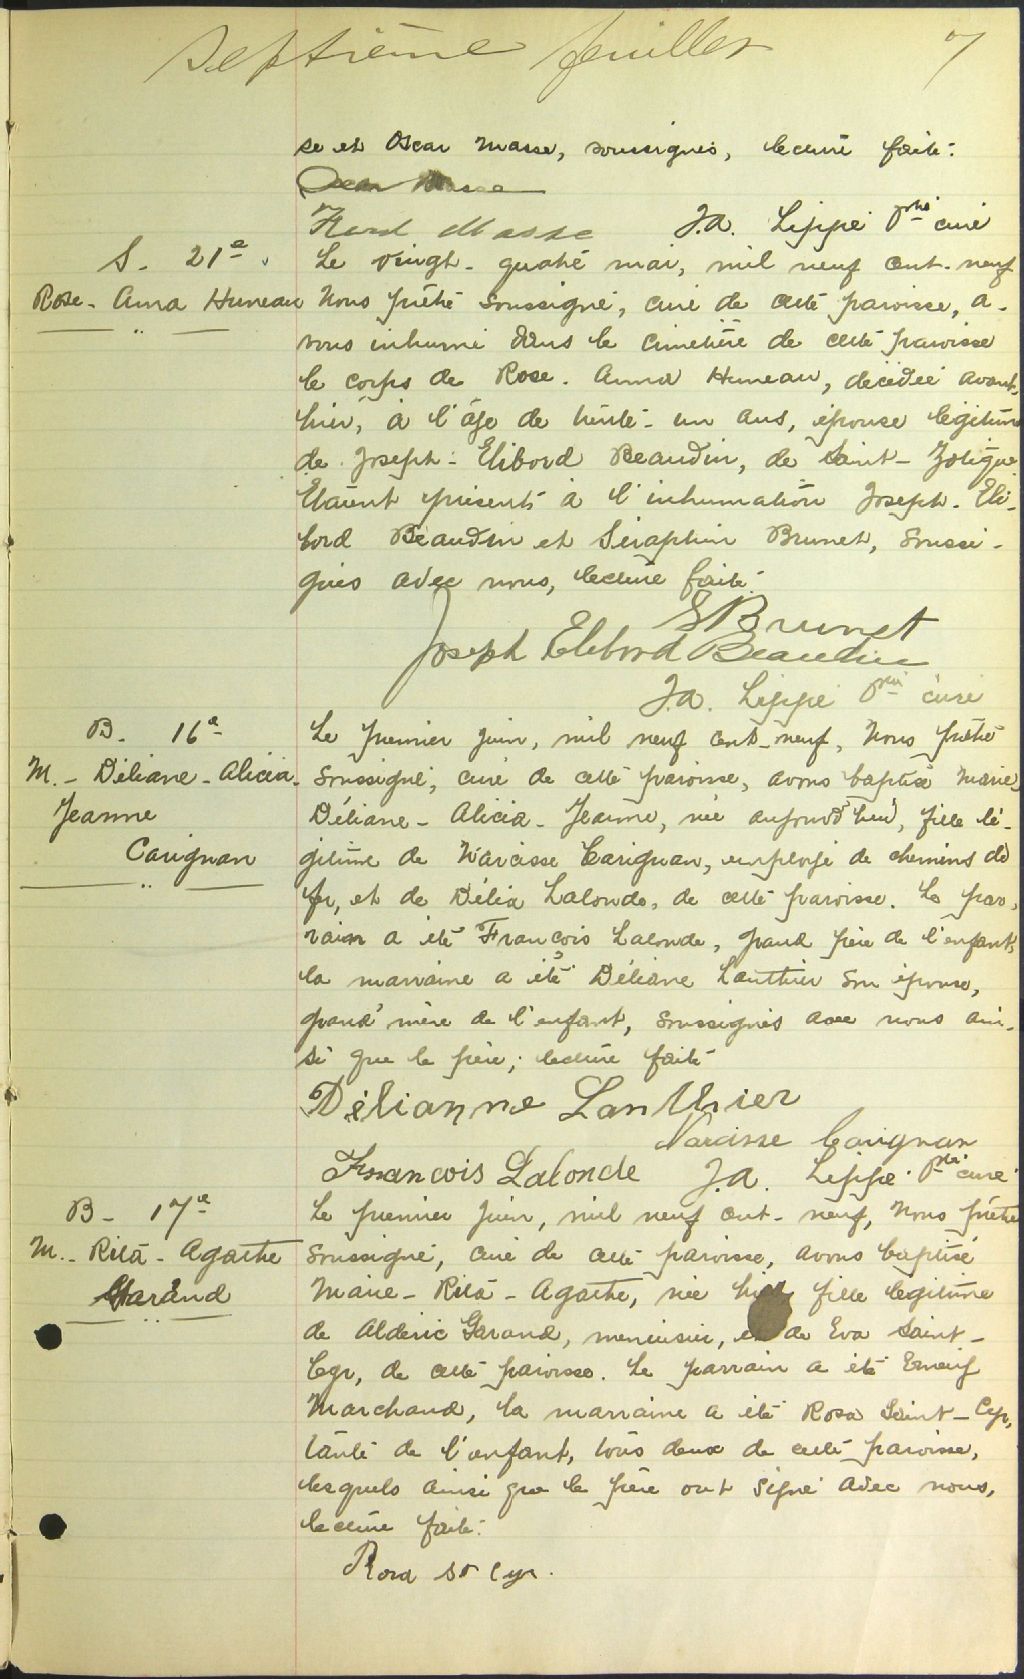 Septième feuillet 7
se et Oscar Masse, soussignés, lecture faite.
Oscar Masse
Ferd Masse J.A. Lippé Ptre curé
S. 21e Le vingt-quatre mai, mil neuf cent-neuf
Rose-Anna Huneau Nous prêtre soussigné, curé de cette paroisse, a-
vons inhumé dans le cimetière de cette paroisse
le corps de Rose-Anna Huneau, décédée avant-
hier, à l'âge de trente-un ans, épouse légitime
de Joseph-Elibord Beaudin, de Saint-Zotique.
Etaient présents à l'inhumation Joseph-Eli-
bord Beaudin et Séraphin Brunet, soussi-
gnés avec nous, lecture faite.
S Brunet
Joseph Elebord Beaudin
J.A. Lippé Ptre curé
B. 16e Le premier juin, mil neuf cent-neuf, Nous prêtre
M.-Déliane-Alicia- soussigné, curé de cette paroisse, avons baptisé Marie-
Jeanne Déliane-Alicia-Jeanne, née aujourd'hui, fille lé-
Carignan gitime de Narcisse Carignan, employé de chemins de
fer, et de Délia Lalonde, de cette paroisse. Le par-
rain a été François Lalonde, grand père de l'enfant,
la marraine a été Déliane Lanthier son épouse,
grand'mère de l'enfant, soussignés avec nous ain-
si que le père; lecture faite
Délianne Lanthier
Narcisse Carignan
Francois Lalonde J.A. Lippé Ptre curé
B- 17e Le premier juin, mil neuf cent-neuf, Nous prêtre
M.-Rita-Agathe soussigné, curé de cette paroisse, avons baptisé
Garand Marie-Rita-Agathe, née hier fille légitime
de Aldéric Garand, menuisier, et de Eva Saint-
Cyr, de cette paroisse. Le parrain a été
Marchand, la marraine a été Rosa Saint-Cyr,
tante de l'enfant, tous deux de cette paroisse,
lesquels ainsi que le père ont signé avec nous,
lecture faite.
Rosa St Cyr.